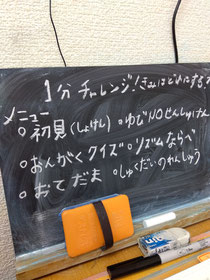 1分チャレンジ!きみはどれにする?
メニュー
○初見(しょけん) ○ゆびNOせんしゅけん
○おんがくクイズ ○リズムならべ
○おてだま ○しゅくだいのれんしゅう